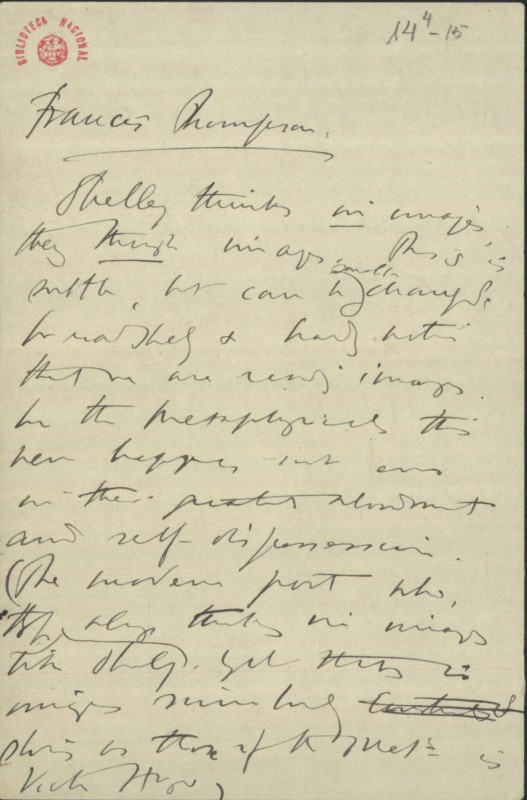 BIBLIOTECA NACIONAL
14⁴-15
Francis Thompson.
Shelley thinks in images,
they through images. This is
subtle, but can be
Shelley & hardly notice
that we are reading images.
In the metaphysicals this
never happens not even
in their greatest abandonment
and self-dispossession.
(The modern poet who,
thinks in images
like Shelley, yet
images
as those of the Met⁸ is
Victor Hugo)